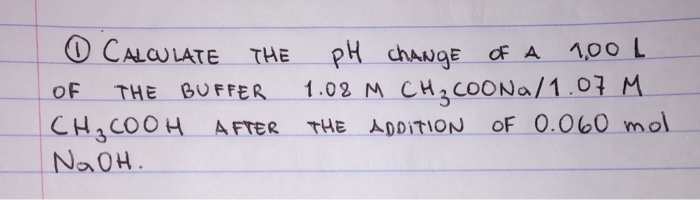 ① CALCULATE THE pH CHANGE OF A 1.00 L
OF THE BUFFER 1.08 M CH₃COONa/1.07 M
CH₃COOH AFTER THE ADDITION OF 0.060 mol
NaOH.